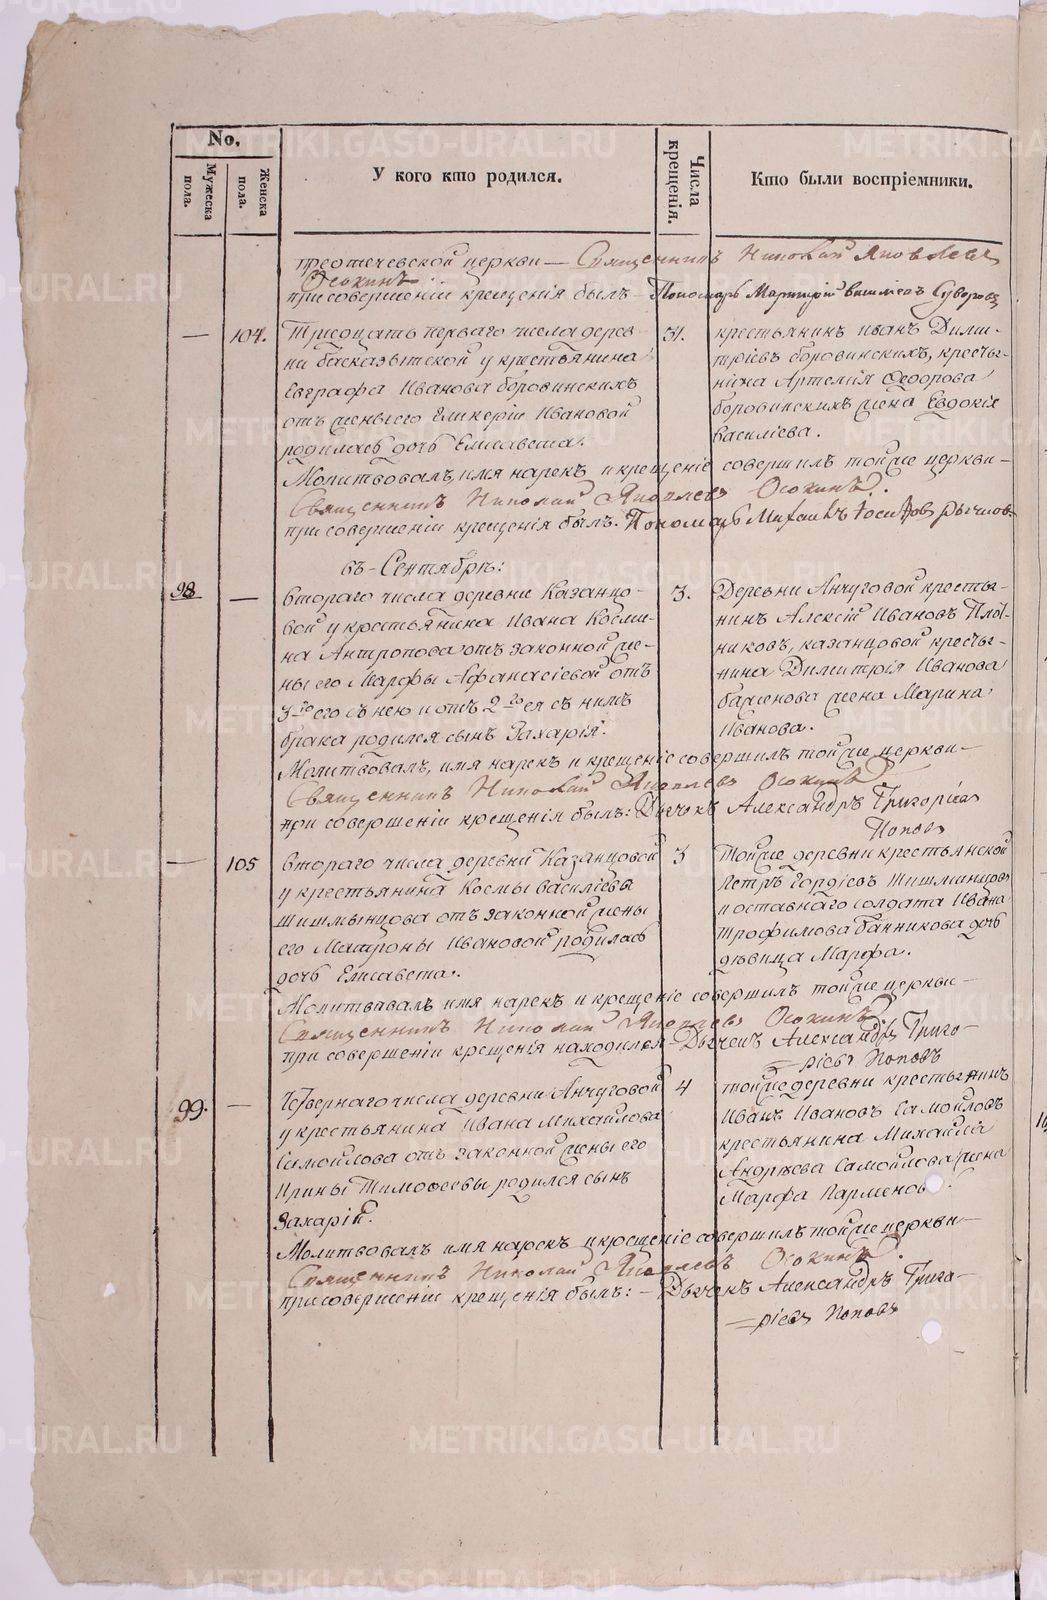 No.
Мужеска пола.
Женска пола.
У кого кто родился.
Числа крещенія.
Кто были воспріемники.
предтечевской церкви — Священникъ Николай Яковлевъ
Осокинъ
при совершеніи крещенія былъ — Пономарь Мартирій Васильевъ Суворовъ
— 104. Тридцать перваго числа дерев-
ни Басказытской у крестьянина
Евграфа Иванова Боровинскихъ
отъ жены его Гликеріи Ивановой
родилась дочь Елисавета.
31.
крестьянинъ Иванъ Дими-
тріевъ Боровинскихъ, крестья-
нина Артемія Ѳедорова
Боровинскихъ жена Евдокія
Василіева.
Молитвовалъ, имя нарекъ и крещеніе совершилъ тойже церкви —
Священникъ Николай Яковлевъ Осокинъ.
при совершеніи крещенія былъ. Пономарь Михаилъ Іосифовъ
въ Сентябрѣ:
98 — Втораго числа деревни Казанцо-
вой у крестьянина Ивана Косми-
на Антропова отъ законной же-
ны его Марфы Афанасіевой отъ
3го его съ нею и отъ 2го ея съ нимъ
брака родился сынъ Захарія.
3.
Деревни Анчуговой крестья-
нинъ Алексій Ивановъ Плот-
никовъ, казанцовой крестья-
нина Димитрія Иванова
Баженова жена Марина
Иванова.
Молитвовалъ, имя нарекъ и крещеніе совершилъ тойже церкви —
Священникъ Николай Яковлевъ Осокинъ
при совершеніи крещенія былъ: Дьячекъ Александръ Григоріевъ
Поповъ
— 105 Втораго числа деревни Казанцовой
у крестьянина Космы Василіева
Шишмынцова отъ законной жены
его Матроны Ивановой родилась
дочь Елисавета.
3
Тойже деревни крестьянской
Петръ Гордіевъ Шишминцовъ
и отставнаго солдата Ивана
Трофимова Банникова дочь
дѣвица Марфа.
Молитвовалъ имя нарекъ и крещеніе совершилъ тойже церкви —
Священникъ Николай Яковлевъ Осокинъ.
при совершеніи крещенія находился — Дьячекъ Александръ Григо-
=ріевъ Поповъ
99. — Четвертаго числа деревни Анчуговой
у крестьянина Ивана Михайлова
Самойлова отъ законной жены его
Ирины Тимофеевы родился сынъ
Захарій.
4
тойже деревни крестьянинъ
Иванъ Ивановъ Самойловъ
крестьянина Михайла
Андрѣева Самойлова жена
Марфа Парменова.
Молитвовалъ имя нарекъ и крещеніе совершилъ тойже церкви —
Священникъ Николай Яковлевъ Осокинъ.
при совершеніи крещенія былъ: — Дьячекъ Александръ Григо-
=ріевъ Поповъ
METRIKI.GASO-URAL.RU